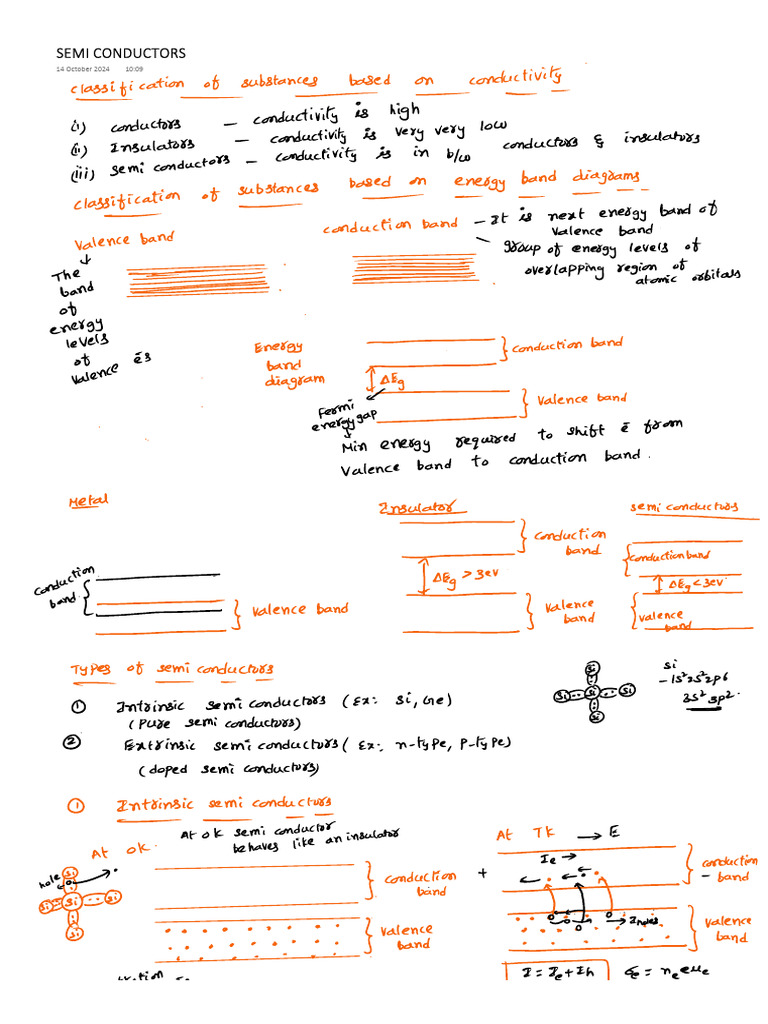 SEMI CONDUCTORS
14 October 2024 10:09
classification of substances based on conductivity
(i) conductors — conductivity is high
(ii) Insulators — conductivity is very very low
(iii) semi conductors — conductivity is in b/w conductors & insulators
classification of substances based on energy band diagrams
Valence band
The band of energy levels of valence ēs
conduction band — It is next energy band of valence band
— group of energy levels of overlapping region of atomic orbitals
Energy band diagram
conduction band
ΔEg
valence band
Fermi energy gap
Min energy required to shift ē from
valence band to conduction band.
Metal
conduction band
valence band
Insulator
conduction band
ΔEg > 3ev
valence band
semi conductors
conduction band
ΔEg < 3ev
valence band
Types of semi conductors
① Intrinsic semi conductors (Ex: si, Ge)
(pure semi conductors)
② Extrinsic semi conductors (Ex:, n-type, p-type)
(doped semi conductors)
si
si si si
si
si
– 1s² 2s² 2p6
3s² 3p2.
① Intrinsic semi conductors
At 0K.
At 0K semi conductor
behaves like an insulator
hole
si
si si si
si
conduction band
valence band
At TK → E
+
Ie →
conduction band
–
Iholes
valence band
I = Ie + Ih
σe = ne e μe